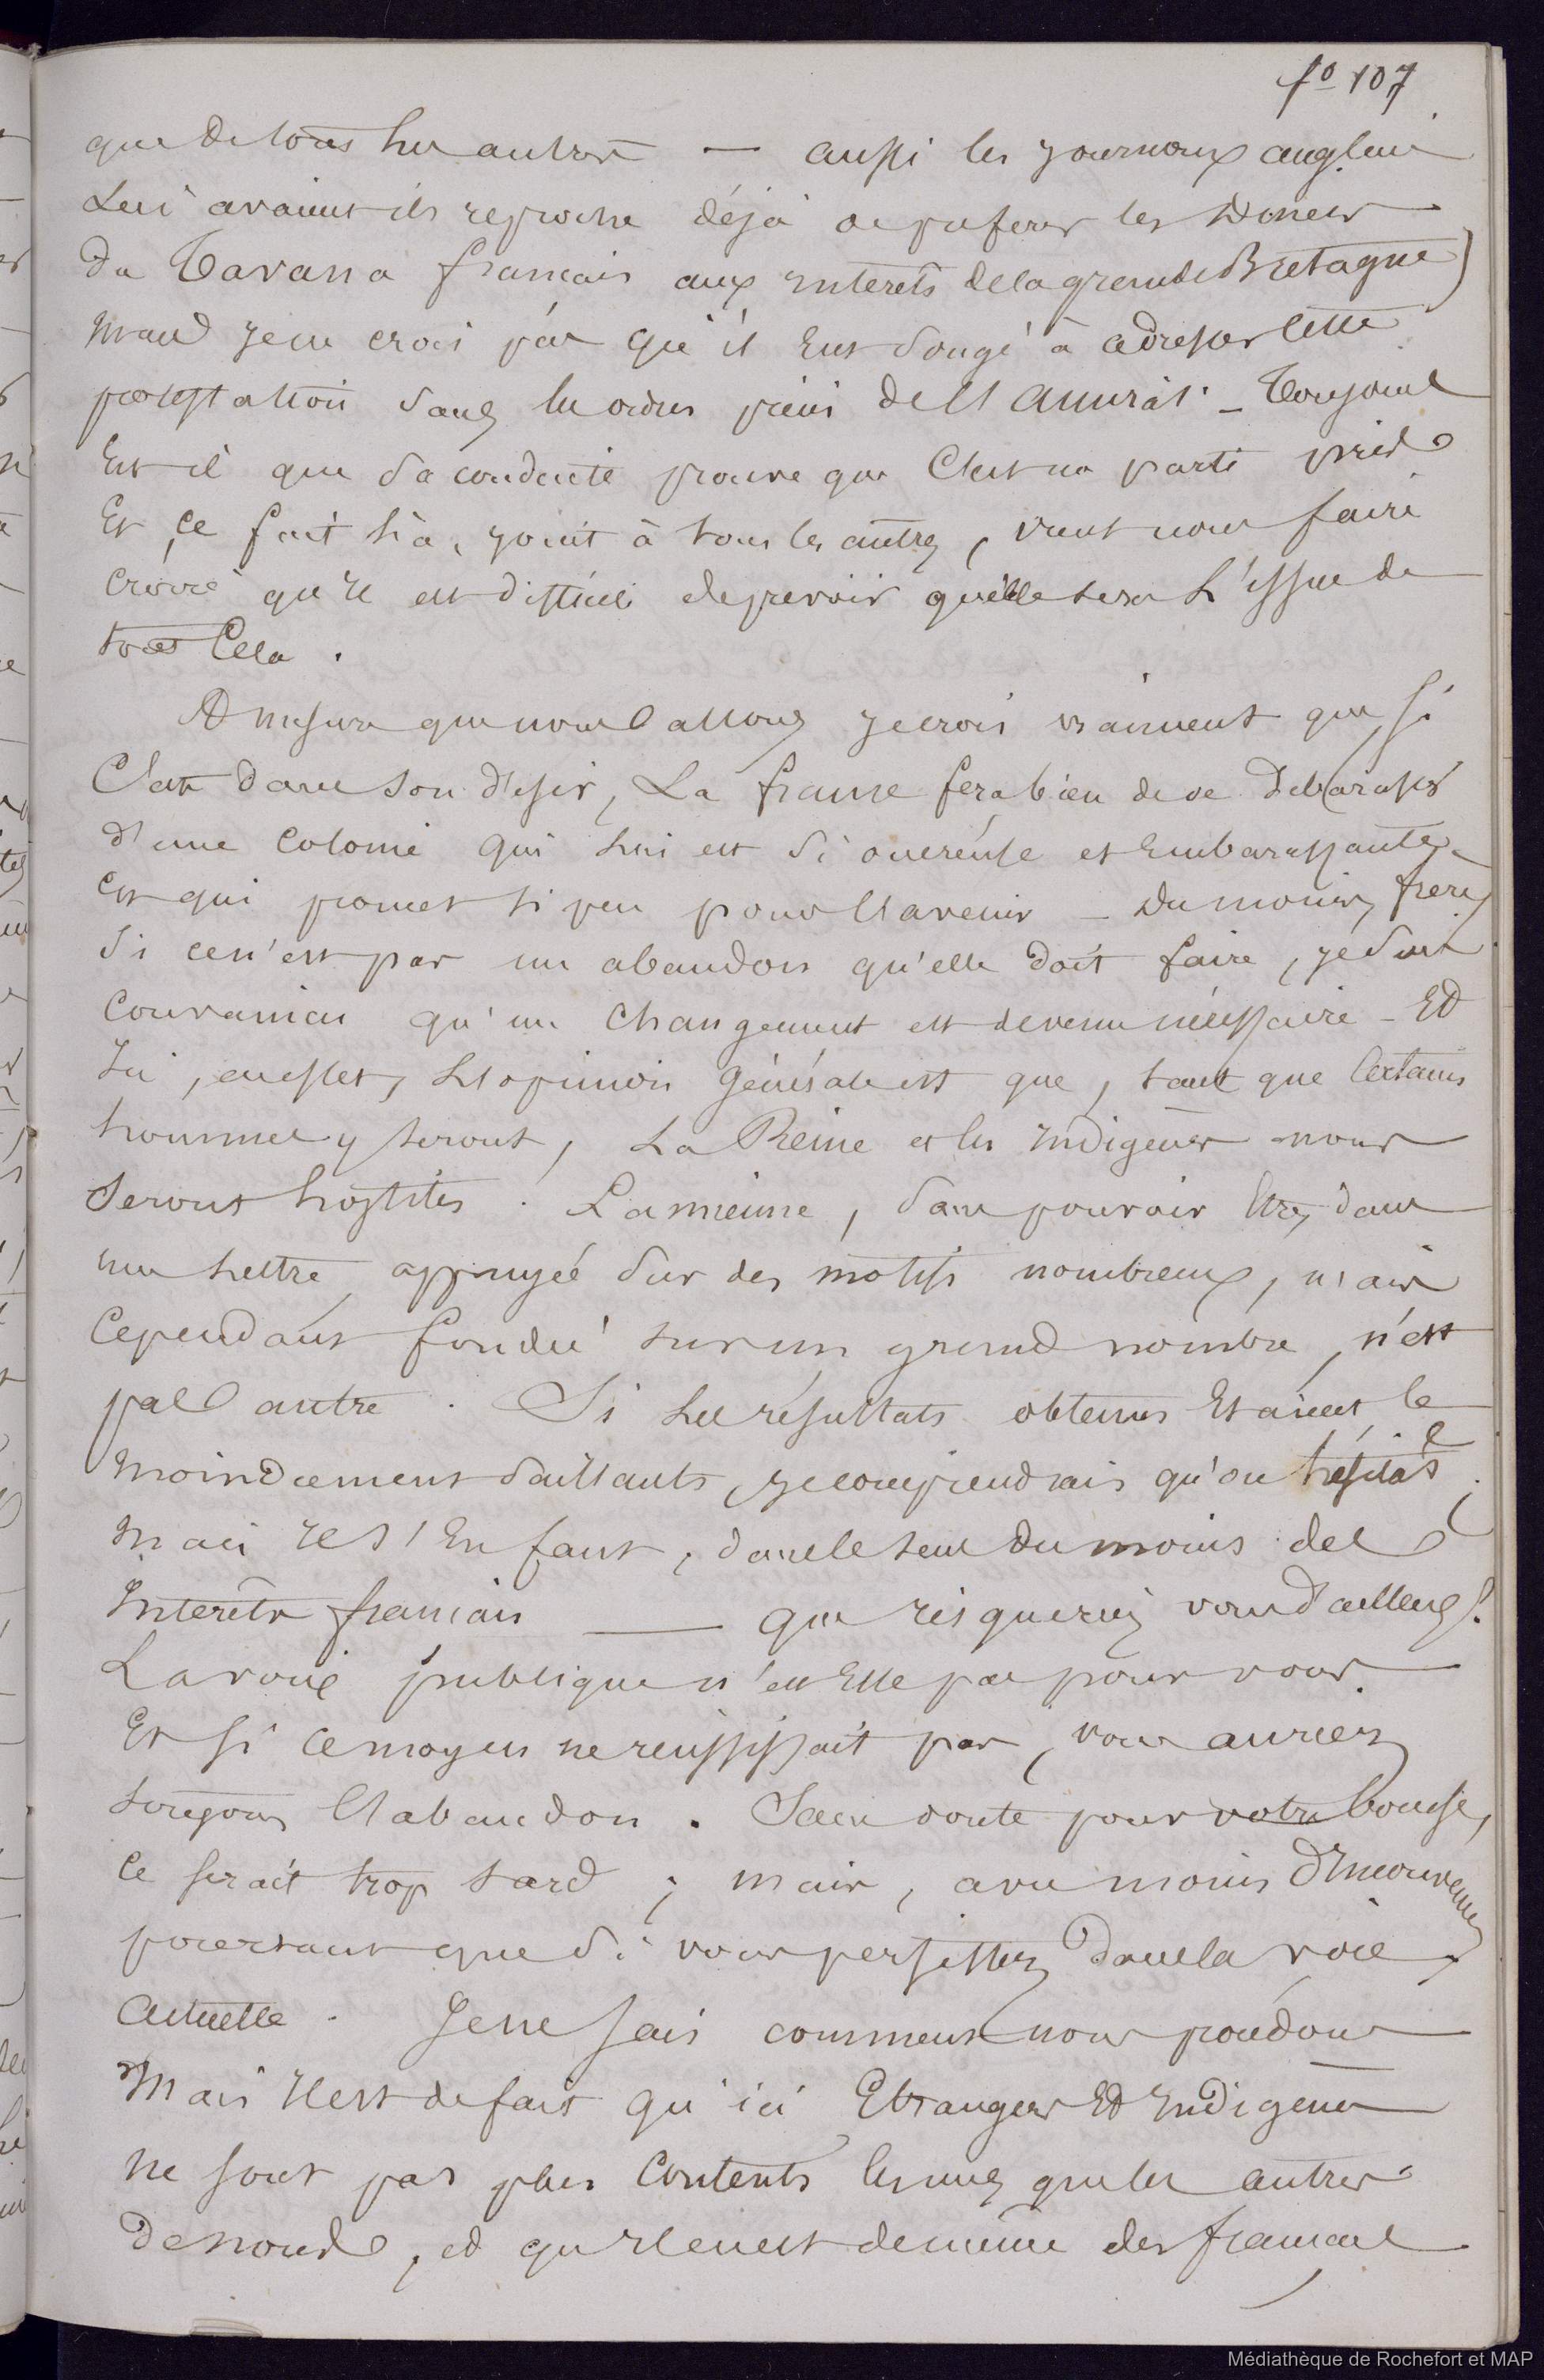 fo 107
que de tous les autres — aussi les journaux anglais
Lui avaient ils reproché déjà de préférer les Diners
du Tavana français aux interets de la grande Bretagne)
mais je ne crois pas qu'il eut songé à adresser cette
protestation sans les ordres précis de l'Amiral _ Toujours
Est il que sa conduite prouve que C'est un parti pris
Et ce fait là, joint à tous les autres, vient nous faire
croire qu'il est difficile de prevoir quelle sera L'issue de
tout Cela.
A mesure que nous allons je crois vraiment que, si
C'est dans son désir, La france fera bien de se debarasser
d'une Colonie qui lui est si onereuse et embarassante
Et qui promet si peu pour l'avenir _ Du moins, frere,
Si ce n'est pas un abandon qu'elle doit faire, je suis
Convaincu qu'un changement est devenu nécessaire _ Et
Ici, en effet, L'opinion générale est que, tant que Certains
hommes y seront, La Reine et les indigènes nous
seront hostiles. La mienne, sans pouvoir Etre, dans
une lettre appuyée sur des motifs nombreux, mais
Cependant fondée sur un grand nombre, n'est
pas autre. Si les résultats obtenus Etaient le
moindrement saillants, je comprendrais qu'on hésitat ;
mais il s'En faut, dans le sens du moins des
Interets français — que risqueriez vous d'ailleurs ?
La voix publique n'est Elle pas pour vous.
Et si ce moyen ne reussissait pas, vous auriez
toujours l'abandon. Sans doute pour votre bourse,
Ce serait trop tard ; mais, avec moins d'Inconvenients
pourtant que si vous persistiez dans la voie
Actuelle. Je ne sais comment nous
Mais il est de fait qu'ici Etrangers Et indigenes
ne sont pas plus Contents les uns que les autres
de nous, et qu'il en est de même des français